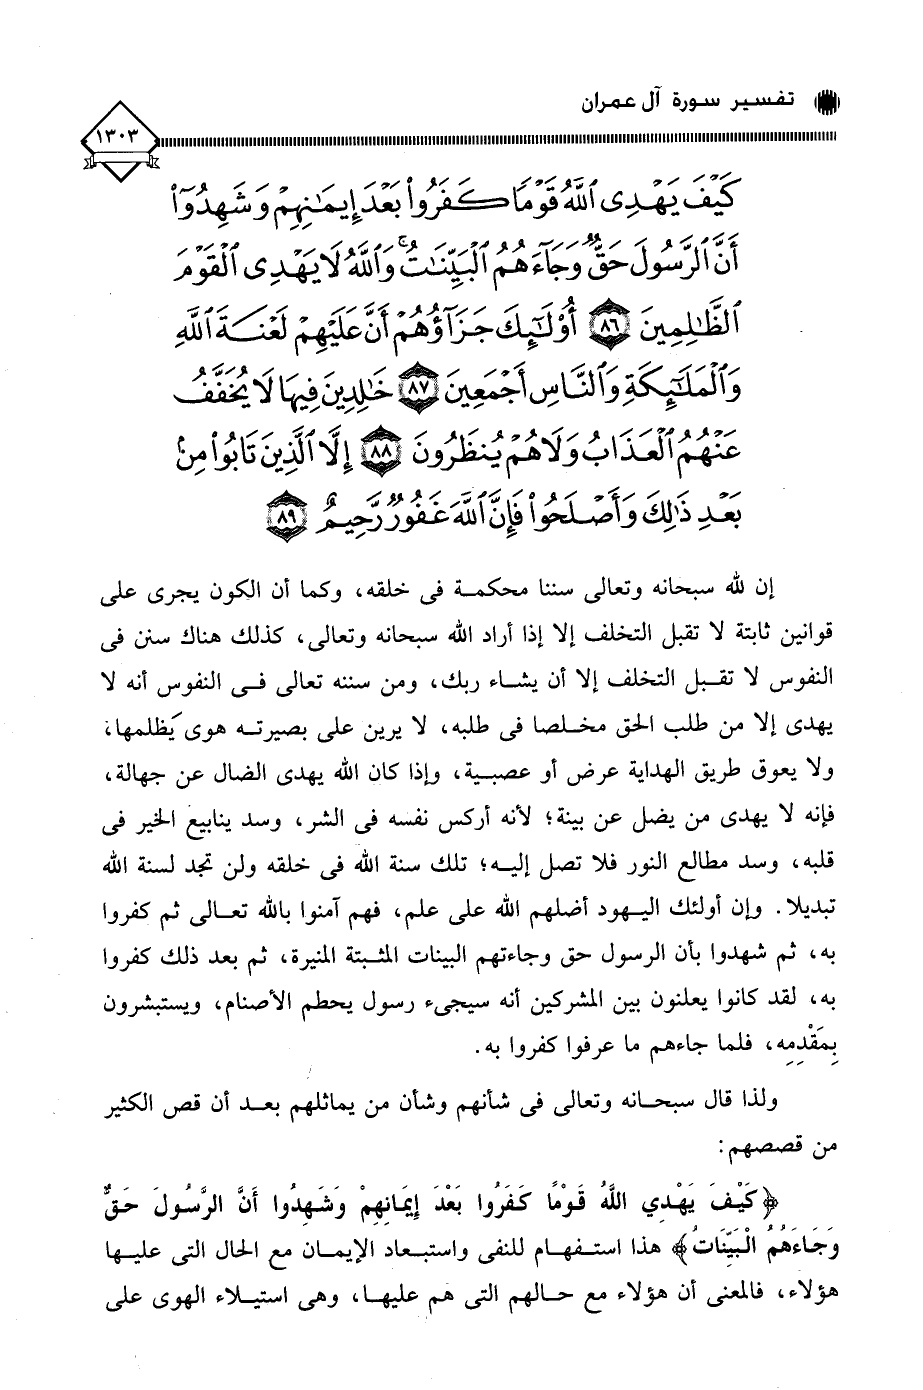 تفسير سورة آل عمران
١٣٠٣
كَيْفَ يَهْدِى ٱللَّهُ قَوْمًا كَفَرُوا۟ بَعْدَ إِيمَـٰنِهِمْ وَشَهِدُوٓا۟
أَنَّ ٱلرَّسُولَ حَقٌّ وَجَآءَهُمُ ٱلْبَيِّنَـٰتُ ۚ وَٱللَّهُ لَا يَهْدِى ٱلْقَوْمَ
ٱلظَّـٰلِمِينَ ٨٦ أُو۟لَـٰٓئِكَ جَزَآؤُهُمْ أَنَّ عَلَيْهِمْ لَعْنَةَ ٱللَّهِ
وَٱلْمَلَـٰٓئِكَةِ وَٱلنَّاسِ أَجْمَعِينَ ٨٧ خَـٰلِدِينَ فِيهَا لَا يُخَفَّفُ
عَنْهُمُ ٱلْعَذَابُ وَلَا هُمْ يُنظَرُونَ ٨٨ إِلَّا ٱلَّذِينَ تَابُوا۟ مِنۢ
بَعْدِ ذَٰلِكَ وَأَصْلَحُوا۟ فَإِنَّ ٱللَّهَ غَفُورٌ رَّحِيمٌ ٨٩
إن لله سبحانه وتعالى سننا محكمة فى خلقه، وكما أن الكون يجرى على
قوانين ثابتة لا تقبل التخلف إلا إذا أراد الله سبحانه وتعالى، كذلك هناك سنن فى
النفوس لا تقبل التخلف إلا أن يشاء ربك، ومن سننه تعالى فى النفوس أنه لا
يهدى إلا من طلب الحق مخلصا فى طلبه، لا يرين على بصيرته هوى يُظلمها،
ولا يعوق طريق الهداية عرض أو عصبية، وإذا كان الله يهدى الضال عن جهالة،
فإنه لا يهدى من يضل عن بينة؛ لأنه أركس نفسه فى الشر، وسد ينابيع الخير فى
قلبه، وسد مطالع النور فلا تصل إليه؛ تلك سنة الله فى خلقه ولن تجد لسنة الله
تبديلا. وإن أولئك اليهود أضلهم الله على علم، فهم آمنوا بالله تعالى ثم كفروا
به، ثم شهدوا بأن الرسول حق وجاءتهم البينات المثبتة المنيرة، ثم بعد ذلك كفروا
به، لقد كانوا يعلنون بين المشركين أنه سيجىء رسول يحطم الأصنام، ويستبشرون
بِمَقْدِمِه، فلما جاءهم ما عرفوا كفروا به.
ولذا قال سبحانه وتعالى فى شأنهم وشأن من يماثلهم بعد أن قص الكثير
من قصصهم:
﴿كَيْفَ يَهْدِي اللَّهُ قَوْمًا كَفَرُوا بَعْدَ إِيمَانِهِمْ وَشَهِدُوا أَنَّ الرَّسُولَ حَقٌّ
وَجَاءَهُمُ الْبَيِّنَاتُ﴾ هذا استفهام للنفى واستبعاد الإيمان مع الحال التى عليها
هؤلاء، فالمعنى أن هؤلاء مع حالهم التى هم عليها، وهى استيلاء الهوى على